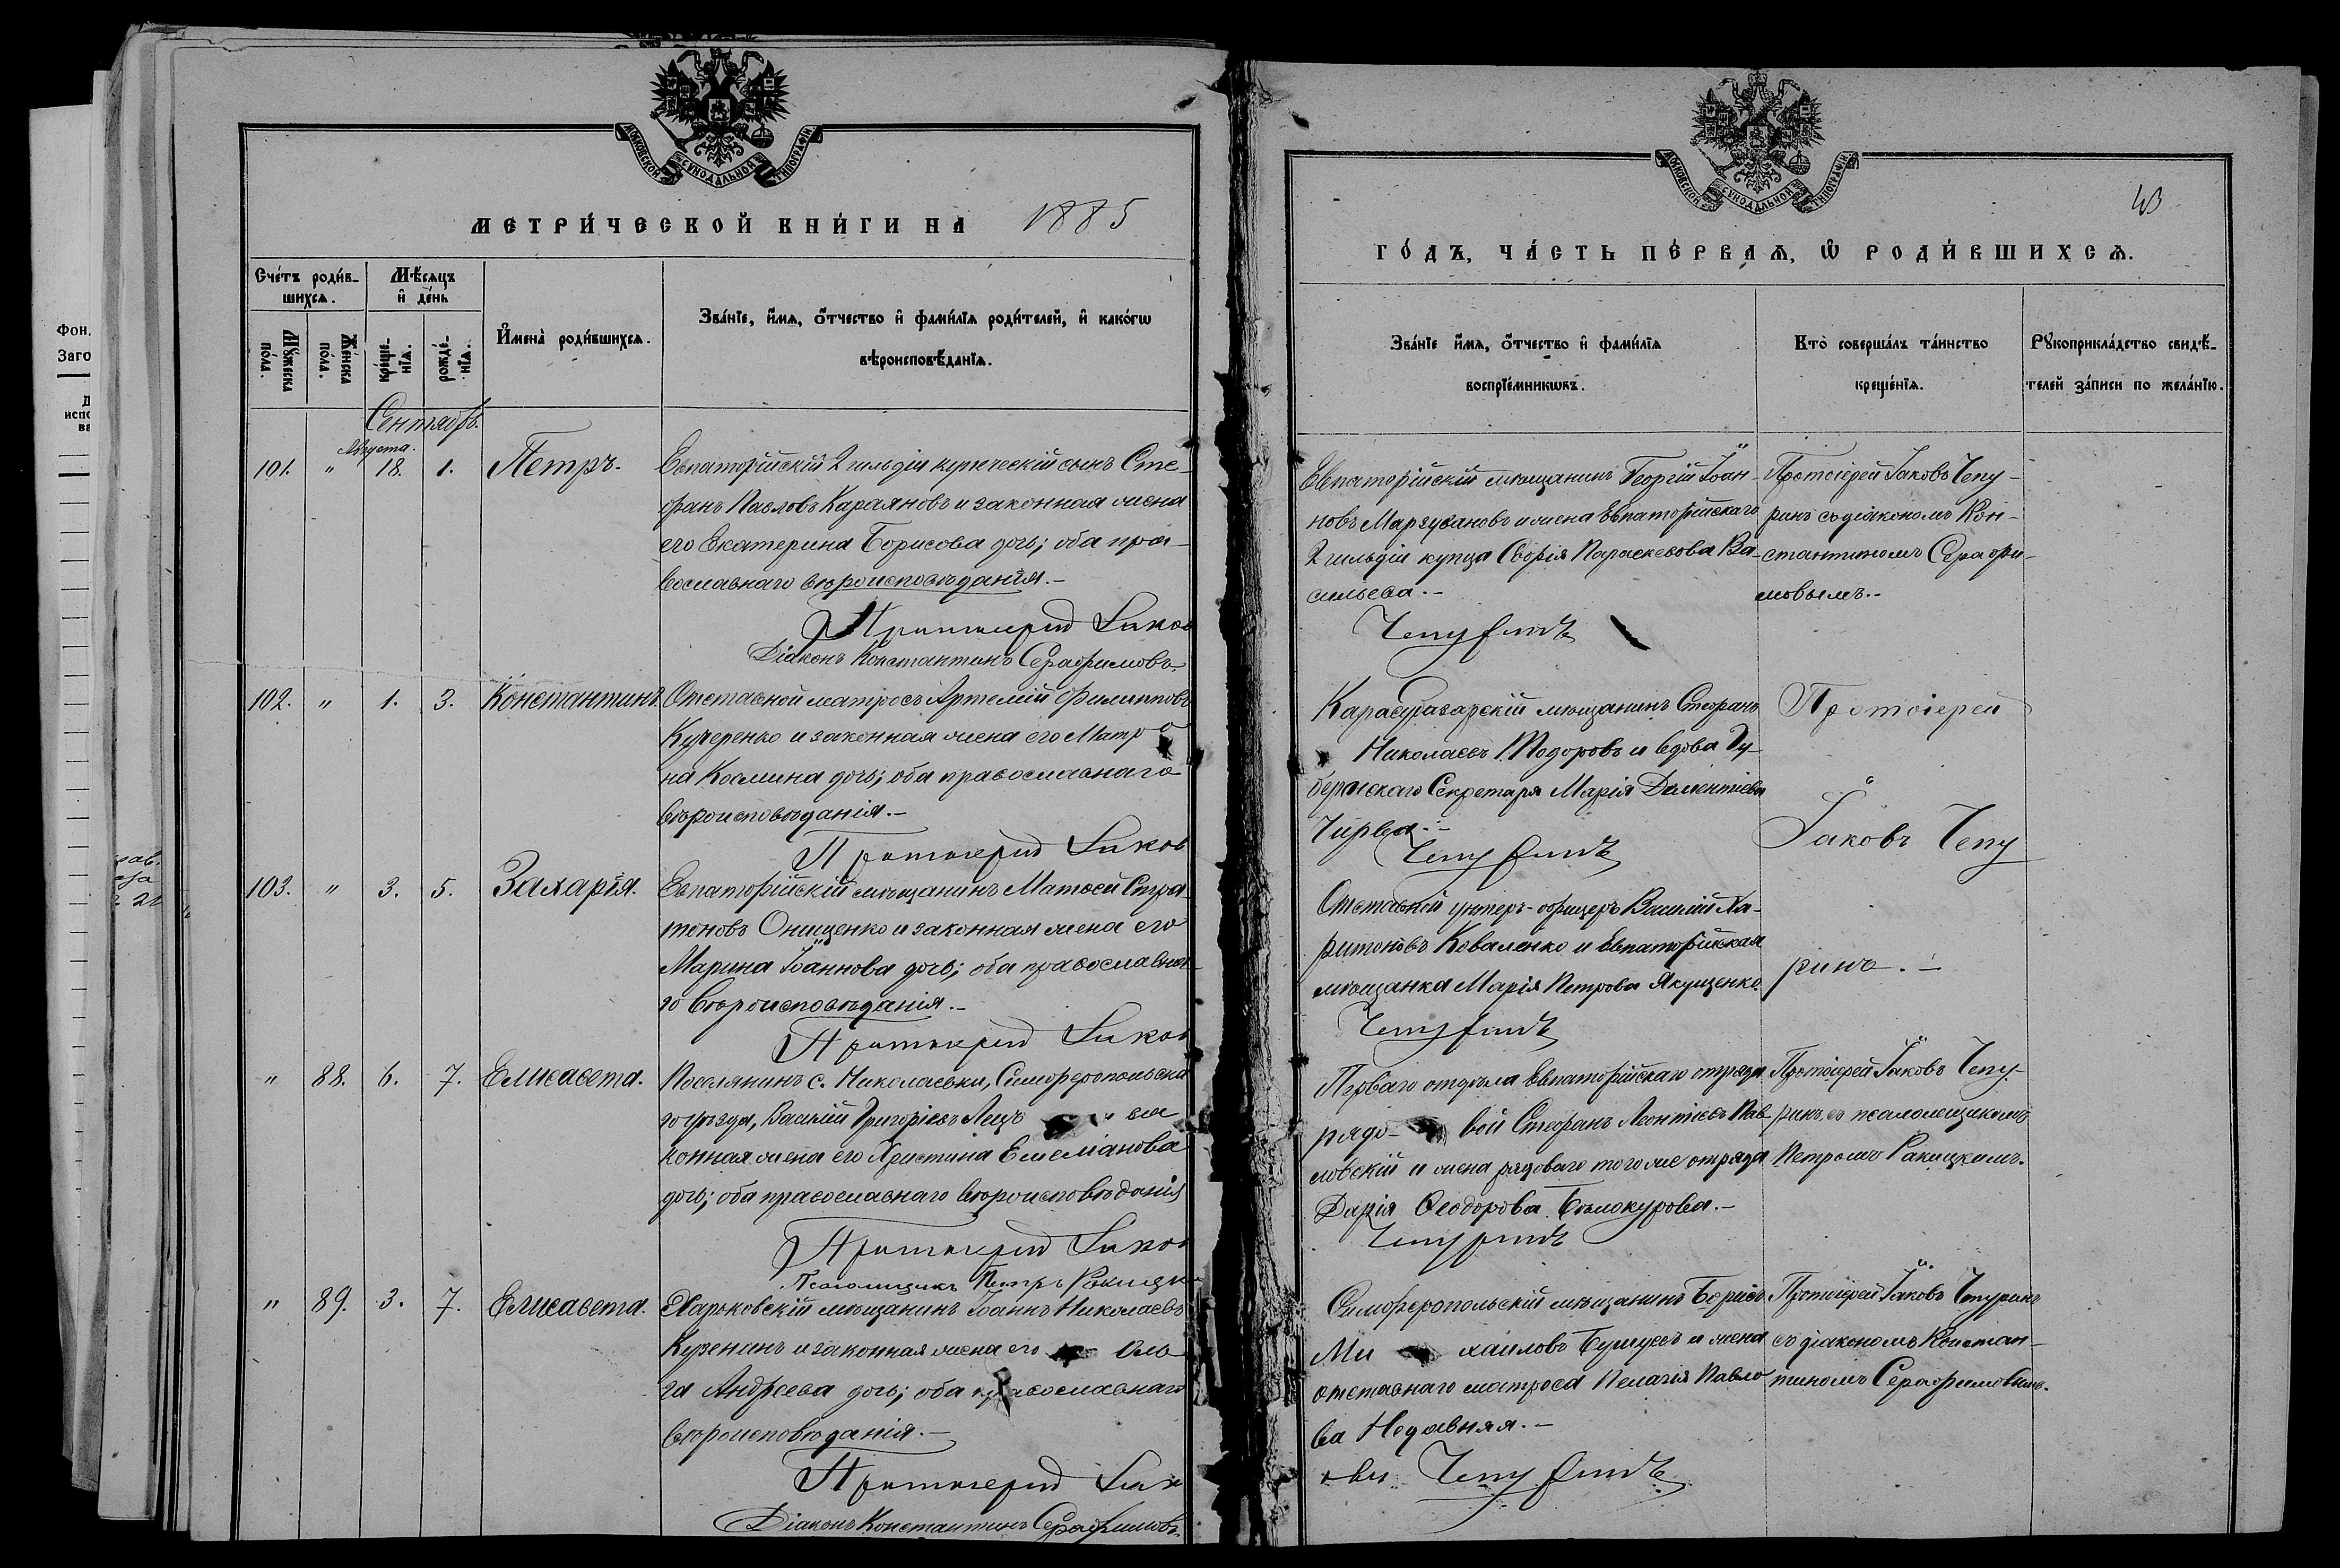 МОСКОВСКОЙ СѴНОДАЛЬНОЙ ТИПОГРАФІИ
МЕТРИ́ЧЕСКОЙ КНИ́ГИ НА 1885
Сче́тъ роди́в-
шихсѧ.
Мѣ́сяцъ
и҆ де́нь
Мꙋ́жеска
по́ла.
Же́нска
по́ла.
креще-
нїѧ.
рожде́-
нїѧ.
И҆мена̀ роди́вшихсѧ.
Зва́нїе, и҆́мѧ, ѻ҆́тчество и҆ фами́лїѧ роди́телей, и҆ како́гѡ
вѣроисповѣ́данїѧ.
Сентябрь.
Августа.
101. " 18. 1. Петръ.
Евпаторійскій 2 гильдіи купеческій сынъ Сте-
фанъ Павловъ Караяновъ и законная жена
его Екатерина Борисова дочь; оба пра-
вославнаго вѣроисповѣданія.-
Протоіерей Іаков
Діаконъ Константинъ Серафимовъ.
102. " 1. 3. Константинъ.
Отставной матросъ Артемій Филипповъ
Кучеренко и законная жена его Матро
на Косьмина дочь; оба православнаго
вѣроисповѣданія.-
Протоіерей Іаков
103. " 3. 5. Захарія.
Евпаторійскій мѣщанинъ Матѳей Стра-
тоновъ Онищенко и законная жена его
Марина Іоаннова дочь; оба православна-
го вѣроисповѣданія.-
Протоіерей Іаков
" 88. 6. 7. Елисавета.
Поселянинъ с. Николаевки, Симферопольска
го уѣзда, Василій Григоріевъ Лецъ и за
конная жена его Христина Емеліанова
дочь; оба православнаго вѣроисповѣданія
Протоіерей Іаков
Псаломщикъ Петръ Ракицк
" 89. 3. 7. Елисавета.
Харьковскій мѣщанинъ Іоаннъ Николаевъ
Куренинъ и законная жена его Оль
га Андреева дочь; оба православнаго
вѣроисповѣданія.-
Протоіерей Іак
Діаконъ Константинъ Серафимовъ.
МОСКОВСКОЙ СѴНОДАЛЬНОЙ ТИПОГРАФІИ
43
ГО́ДЪ, ЧА́СТЬ ПЕ́РВАѦ, Ѡ҆ РОДИ́ВШИХСѦ.
Зва́нїе и҆́мѧ, ѻ҆́тчество и҆ фами́лїѧ
воспрїе́мникѡвъ.
Кто̀ соверша́лъ та́инство
креще́нїѧ.
Рꙋкоприкла́дство свидѣ́-
телей за́писи по жела́нїю.
Евпаторійскій мѣщанинъ Георгій Іоан-
новъ Маргусановъ и жена Евпаторійскаго
2 гильдіи купца Сворія Параскевова Ва-
сильева.-
Чепуринъ
Протоіерей Іаковъ Чепу-
ринъ съ діакономъ Кон-
стантиномъ Серафи-
мовымъ.-
Карасубазарскій мѣщанинъ Стефанъ
Николаевъ Тодоровъ и вдова Гу-
бернскаго Секретаря Марія Дементіева
Чирва.-
Чепуринъ
Протоіерей
Іаковъ Чепу
ринъ.-
Отставной унтеръ-офицеръ Василій Ха-
ритоновъ Коваленко и Евпаторійская
мѣщанка Марія Петрова Якущенко.
Чепуринъ
Перваго отдѣла Евпаторійскаго отряда
рядо- вой Стефанъ Леонтіевъ Пав
ловскій и жена рядоваго того же отряда
Дарія Ѳеодорова Бѣлокурова.-
Чепуринъ
Протоіерей Іаковъ Чепу-
ринъ съ псаломщикомъ
Петромъ Ракицкимъ.
Симферопольскій мѣщанинъ Борисъ
Ми хаиловъ Бушуевъ и жена
отставнаго матроса Пелагія Павло
ва Недавняя.-
овъ Чепуринъ
Протоіерей Іаковъ Чепуринъ
съ діакономъ Констан-
тиномъ Серафимовымъ.